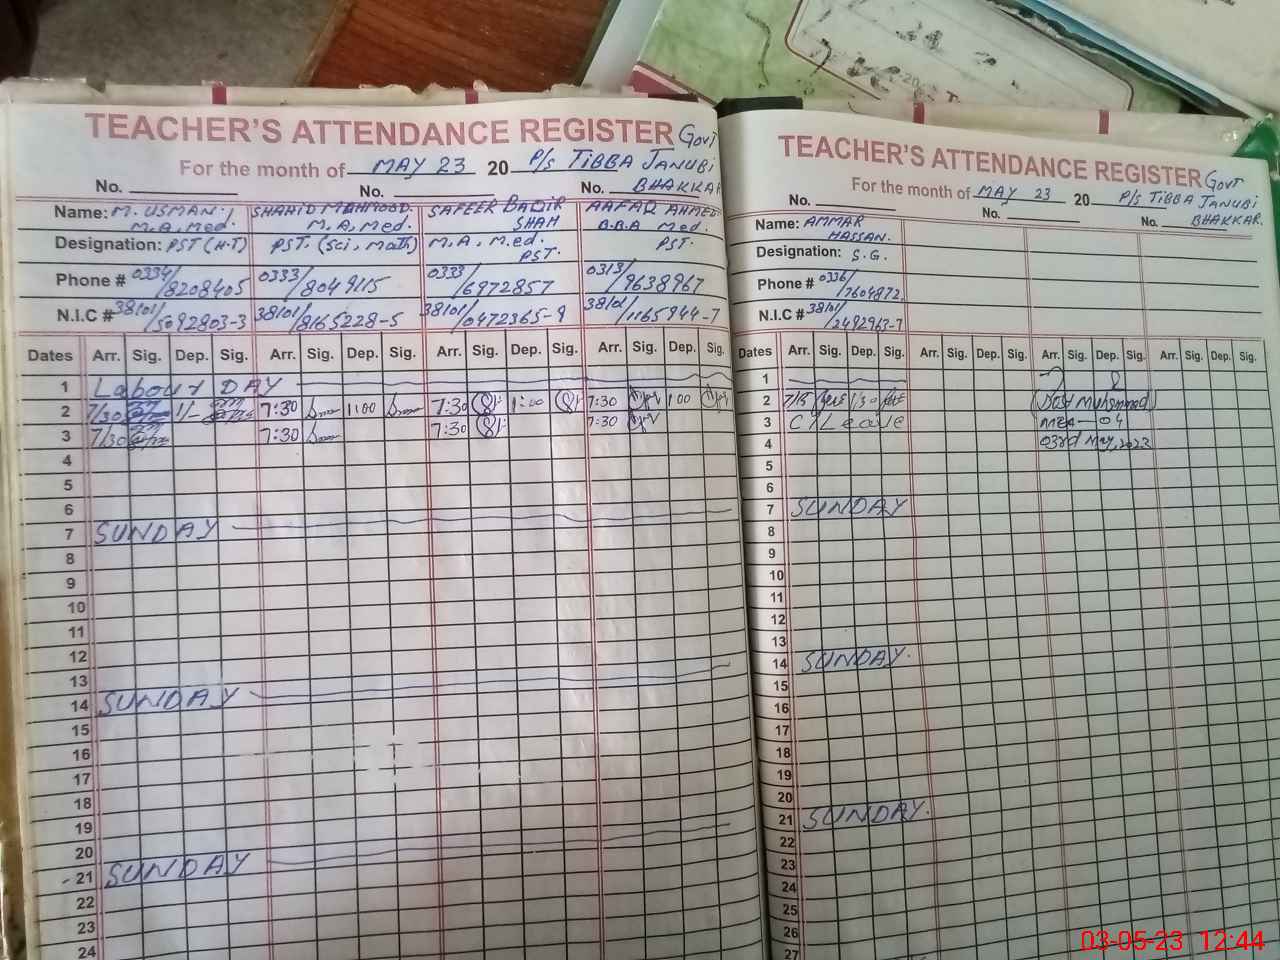 TEACHER'S ATTENDANCE REGISTER Govt
For the month of MAY 23 20 P/s TIBBA JANUBI
No. No. No. BHAKKAR
Name: M. USMAN SHAHID MAHMOOD SAFEER BAQIR AAFAQ AHMED
M.A, Med. M.A, Med. SHAH B.B.A Med.
Designation: PST (H.T) PST. (Sci, Math) M.A, M.ed. PST.
PST.
Phone # 0334/8208405 0333/8049115 0333/6972857 0313/9638967
N.I.C # 38101/5092803-3 38101/8165228-5 38101/0472365-9 38101/1165944-7
Dates Arr. Sig. Dep. Sig. Arr. Sig. Dep. Sig. Arr. Sig. Dep. Sig. Arr. Sig. Dep. Sig.
1 Labour DAY
2 7/30 7:30 1:00 7:30 1:00 7:30 1:00
3 7/30 7:30 7:30 7:30
4
5
6
7 SUNDAY
8
9
10
11
12
13
14 SUNDAY
15
16
17
18
19
20
21 SUNDAY
22
23
24
TEACHER'S ATTENDANCE REGISTER Govt
For the month of MAY 23 20 P/s TIBBA JANUBI
No. No. No. BHAKKAR.
Name: AMMAR
HASSAN.
Designation: S.G.
Phone # 0336/7604872
N.I.C # 38101/2492963-7
Dates Arr. Sig. Dep. Sig. Arr. Sig. Dep. Sig. Arr. Sig. Dep. Sig. Arr. Sig. Dep. Sig.
1
2 Dost Muhammad
3 C/Leave MEA-04
4 03rd May, 2023
5
6
7 SUNDAY
8
9
10
11
12
13
14 SUNDAY.
15
16
17
18
19
20
21 SUNDAY.
22
23
24
25
26
27
03-05-23 12:44